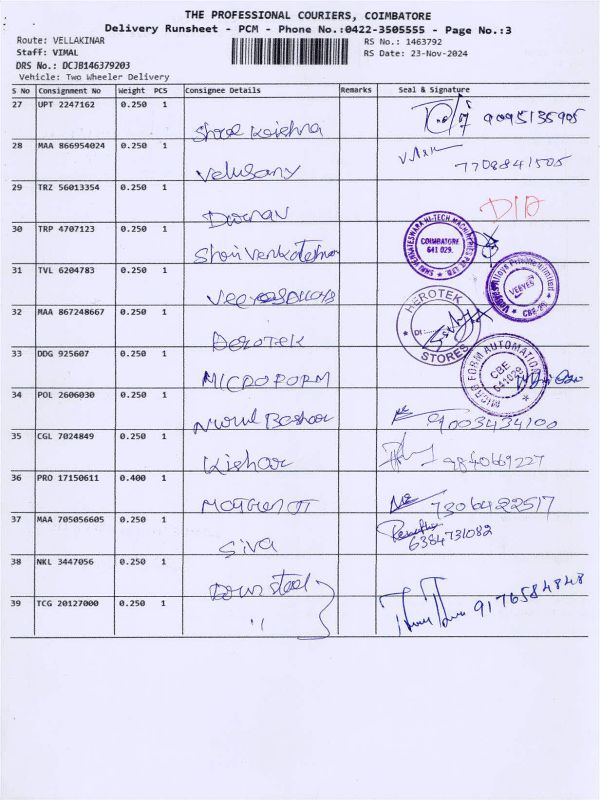 THE PROFESSIONAL COURIERS, COIMBATORE
Delivery Runsheet - PCM - Phone No.:0422-3505555 - Page No.:3
Route: VELLAKINAR RS No.: 1463792
Staff: VIMAL RS Date: 23-Nov-2024
DRS No.: DCJB146379203
Vehicle: Two Wheeler Delivery
S No Consignment No Weight PCS Consignee Details Remarks Seal & Signature
27 UPT 2247162 0.250 1 Shree Krishna 9095135905
28 MAA 866954024 0.250 1 Velusamy 7708841505
29 TRZ 56013354 0.250 1
30 TRP 4707123 0.250 1 SHRI VENKATESWARA HI-TECH MACHINERIES PVT LTD. COIMBATORE 641 029.
31 TVL 6204783 0.250 1 VEEYES CBE-29
32 MAA 867248667 0.250 1 HEROTEK STORES
33 DDG 925607 0.250 1 MICROFORM MICRO FORM AUTOMATION CBE 641029
34 POL 2606030 0.250 1 Nurul 9003434100
35 CGL 7024849 0.250 1 Kishor 9840669227
36 PRO 17150611 0.400 1 7306422517
37 MAA 705056605 0.250 1 Siva 6384731082
38 NKL 3447056 0.250 1 steel
39 TCG 20127000 0.250 1 " 9176584848